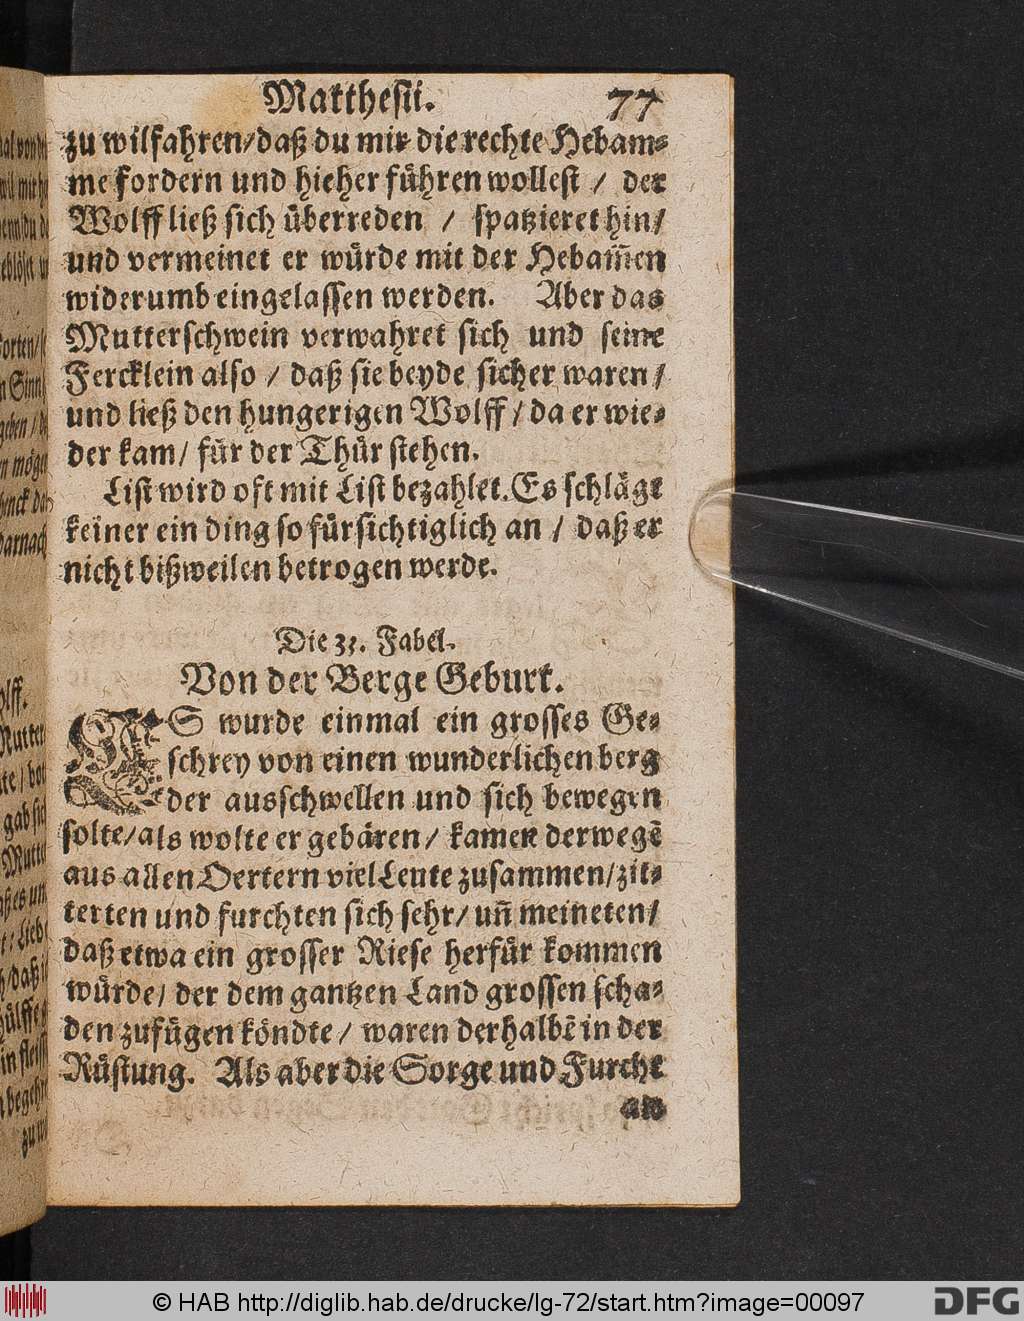 Matthesii. 77
zu wilfahren/daß du mir die rechte Hebam⸗
me fordern und hieher führen wollest / der
Wolff ließ sich überreden / spatzieret hin/
und vermeinet er würde mit der Hebam̃en
widerumb eingelassen werden. Aber das
Mutterschwein verwahret sich und seine
Fercklein also / daß sie beyde sicher waren/
und ließ den hungerigen Wolff / da er wie⸗
der kam/ für der Thür stehen.
List wird oft mit List bezahlet. Es schlägt
keiner ein ding so fürsichtiglich an / daß er
nicht bißweilen betrogen werde.
Die 31. Fabel.
Von der Berge Geburt.
ES wurde einmal ein grosses Ge⸗
schrey von einen wunderlichen berg
der ausschwellen und sich bewegen
solte/als wolte er gebären/ kamen derwegẽ
aus allen Oertern viel Leute zusammen/zit⸗
terten und furchten sich sehr/ uñ meineten/
daß etwa ein grosser Riese herfür kommen
würde/ der dem gantzen Land grossen scha⸗
den zufügen köndte/ waren derhalbẽ in der
Rüstung. Als aber die Sorge und Furcht
am
© HAB http://diglib.hab.de/drucke/lg-72/start.htm?image=00097
DFG